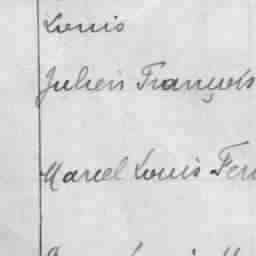 Louis
Julien François
Marcel Louis